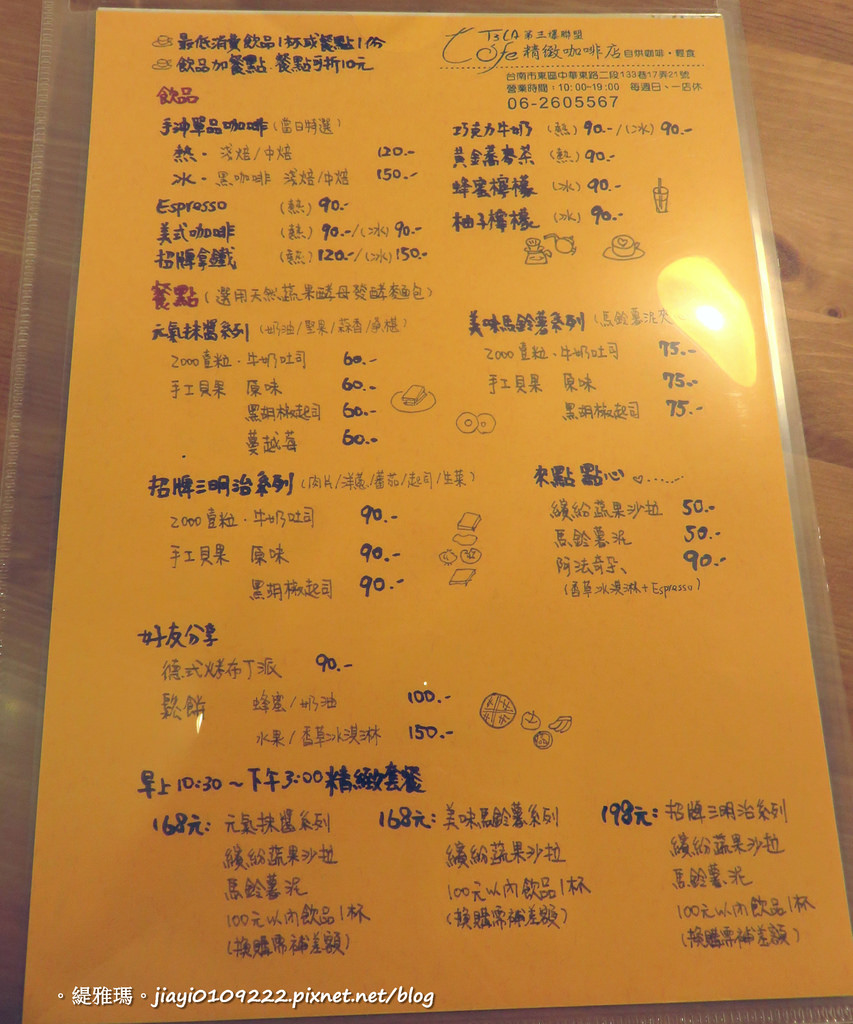 最低消費飲品1杯或餐點1份
飲品加餐點.餐點可折10元
T3CA 第三爆聯盟
Cofe 精緻咖啡店 自烘咖啡·輕食
台南市東區中華東路二段133巷17弄21號
營業時間：10:00-19:00 每週日、一店休
06-2605567
飲品
手沖單品咖啡(當日特選)
熱· 淺焙/中焙 120.-
冰· 黑咖啡 淺焙/中焙 150.-
Espresso (熱) 90.-
美式咖啡 (熱) 90.-/(冰) 90.-
招牌拿鐵 (熱) 120.-/(冰) 150.-
巧克力牛奶 (熱) 90.-/(冰) 90.-
黃金蕎麥茶 (熱) 90.-
蜂蜜檸檬 (冰) 90.-
柚子檸檬 (冰) 90.-
餐點(選用天然蔬果酵母發酵麵包)
元氣抹醬系列(奶油/堅果/蒜香/桑椹)
2000壹粒·牛奶吐司 60.-
手工貝果 原味 60.-
黑胡椒起司 60.-
蔓越莓 60.-
美味馬鈴薯系列(馬鈴薯泥夾
2000壹粒·牛奶吐司 75.-
手工貝果 原味 75.-
黑胡椒起司 75.-
招牌三明治系列(肉片/洋蔥/蕃茄/起司/生菜)
2000壹粒·牛奶吐司 90.-
手工貝果 原味 90.-
黑胡椒起司 90.-
來點點心
繽紛蔬果沙拉 50.-
馬鈴薯泥 50.-
阿法奇朵 90.-
(香草冰淇淋+Espresso)
好友分享
德式烤布丁派 90.-
鬆餅 蜂蜜/奶油 100.-
水果/香草冰淇淋 150.-
早上10:30~下午3:00精緻套餐
168元: 元氣抹醬系列
繽紛蔬果沙拉
馬鈴薯泥
100元以內飲品1杯
(換購需補差額)
168元: 美味馬鈴薯系列
繽紛蔬果沙拉
100元以內飲品1杯
(換購需補差額)
198元: 招牌三明治系列
繽紛蔬果沙拉
馬鈴薯泥
100元以內飲品1杯
(換購需補差額)
。緹雅瑪。jiayi0109222.pixnet.net/blog